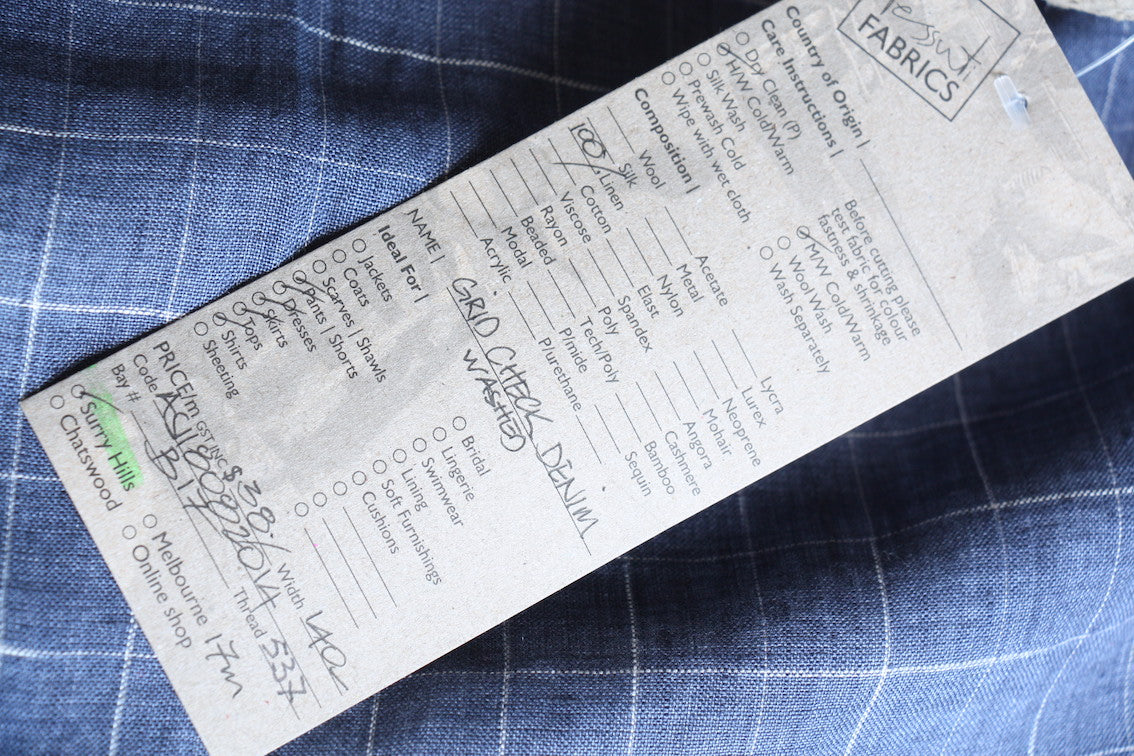 FABRICS
Country of Origin |
Care Instructions |
Dry Clean (P)
H/W Cold/Warm
Silk Wash
Prewash Cold
Wipe with wet cloth
Before cutting please
test fabric for colour
fastness & shrinkage
M/W Cold/Warm
Wool Wash
Wash Separately
Composition |
Wool
Silk
100% Linen
Cotton
Viscose
Rayon
Beaded
Modal
Acrylic
Acetate
Metal
Nylon
Elast
Spandex
Poly
Tech/Poly
P/mide
P/urethane
Lycra
Lurex
Neoprene
Mohair
Angora
Cashmere
Bamboo
Sequin
NAME | GRID CHECK DENIM
WASHED
Ideal For |
Jackets
Coats
Scarves | Shawls
Pants | Shorts
Dresses
Skirts
Tops
Shirts
Sheeting
Bridal
Lingerie
Swimwear
Lining
Soft Furnishings
Cushions
PRICE/m GST INC $38./ Width 140c
Code Thread 337
Bay # B17
Surry Hills
Chatswood
Melbourne
Online shop 17m